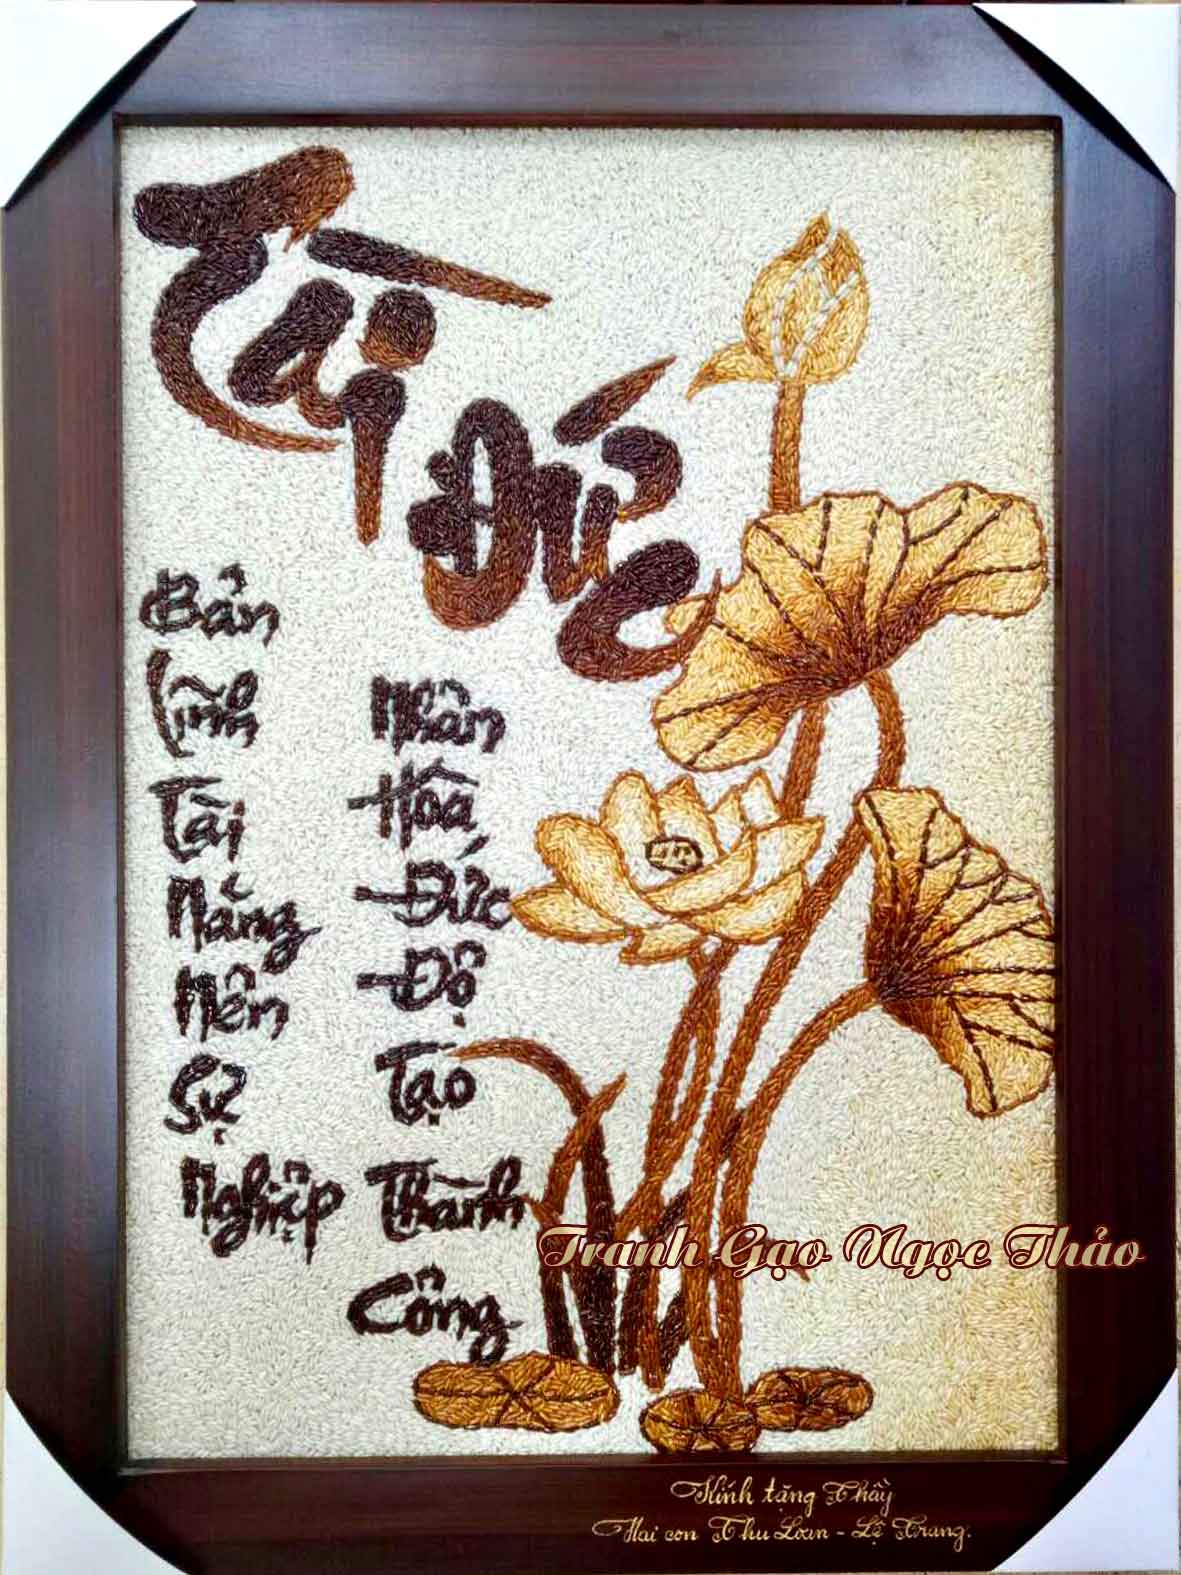 Tài
Đức
Bản
Lĩnh
Tài
Năng
Nên
Sự
Nghiệp
Nhân
Hòa
Đức
Độ
Tạo
Thành
Công
Tranh Gạo Ngọc Thảo
Kính tặng Thầy
Hai con Thu Loan - Lệ Trang.